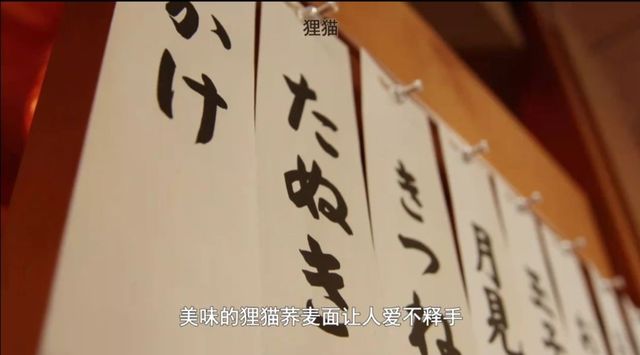 狸猫
かけ
たぬき
きつね
月見
美味的狸猫荞麦面让人爱不释手